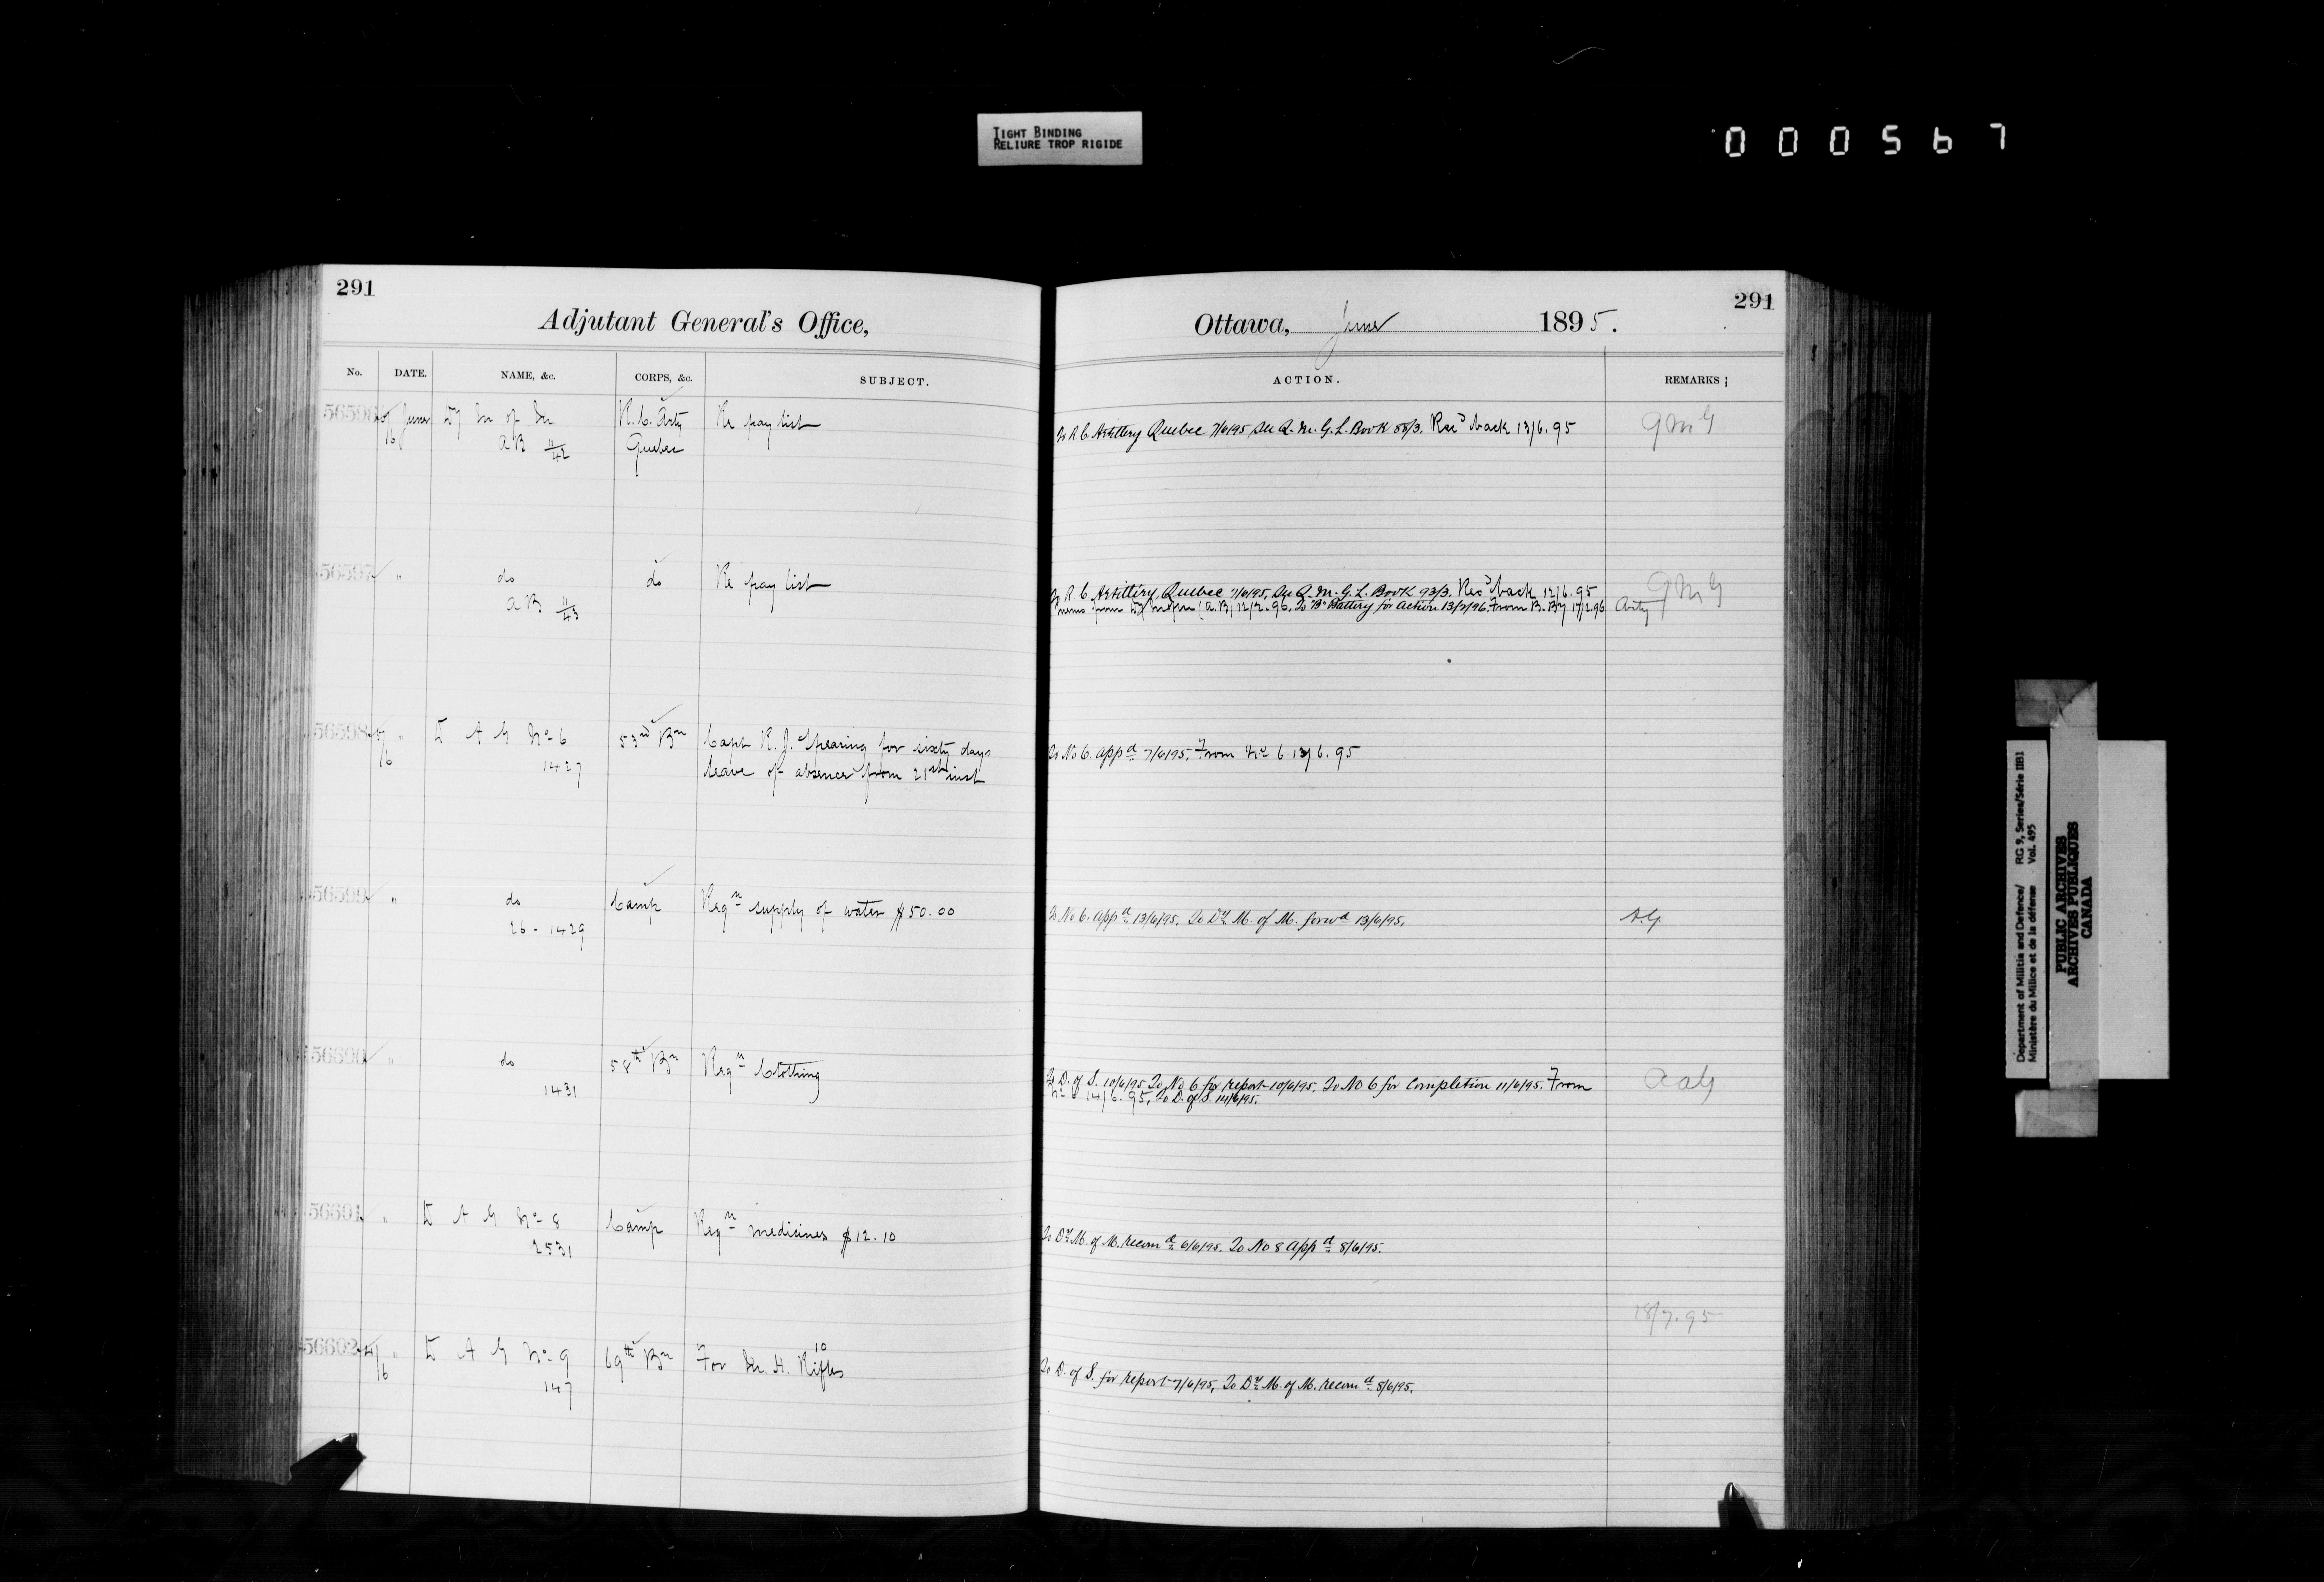 TIGHT BINDING
RELIURE TROP RIGIDE
000567
291
291
Adjutant General's Office,
Ottawa, June 1895.
No. DATE. NAME, &c. CORPS, &c. SUBJECT.
ACTION. REMARKS;
56596 5/6 June Dy M of M R.C. Arty Re pay list
AB 11/42 Quebec
To R C Artillery Quebec 7/6/95 See Q.M.G.L. Book 88/3. Rec'd back 13/6.95 QMG
56597 " do do Re pay list
AB 11/43
To R C Artillery Quebec 7/6/95. See Q.M.G.L. Book 93/3. Rec'd back 12/6.95 QMG
memo from Dy M of M (A.B) 12/2.96. To "B" Battery for action 13/2/96. From B. By 17/2.96 Arty
56598 5/6 " D A G No 6 53rd Bn Capt R. J. Spearing for sixty days
1427 leave of absence from 21st inst
To No 6. appd 7/6/95. From No 6 13/6.95
56599 " do Camp Reqn supply of water $50.00
26 - 1429
To No 6. appd 13/6/95. To Dy M. of M. forwd 13/6/95. A.G.
56600 " do 58th Bn Reqn Clothing
1431
To D. of S. 10/6/95. To No 6 for report 10/6/95. To No 6 for Completion 11/6/95. From AAG
No 6 14/6.95. To D. of S. 14/6/95.
56601 " D A G No 8 Camp Reqn medicines $12.10
2531
To Dy M. of M. recomd 6/6/95. To No 8 appd 8/6/95.
18/7.95
56602 4/6 " D A G No 9 69th Bn For M. H. 10 Rifles
147
To D. of S. for report 7/6/95. To Dy M. of M. recomd 8/6/95.
Department of Militia and Defence/ RG 9, Series/Série IIB1
Ministère du Milice et de la défense Vol. 495
PUBLIC ARCHIVES
ARCHIVES PUBLIQUES
CANADA